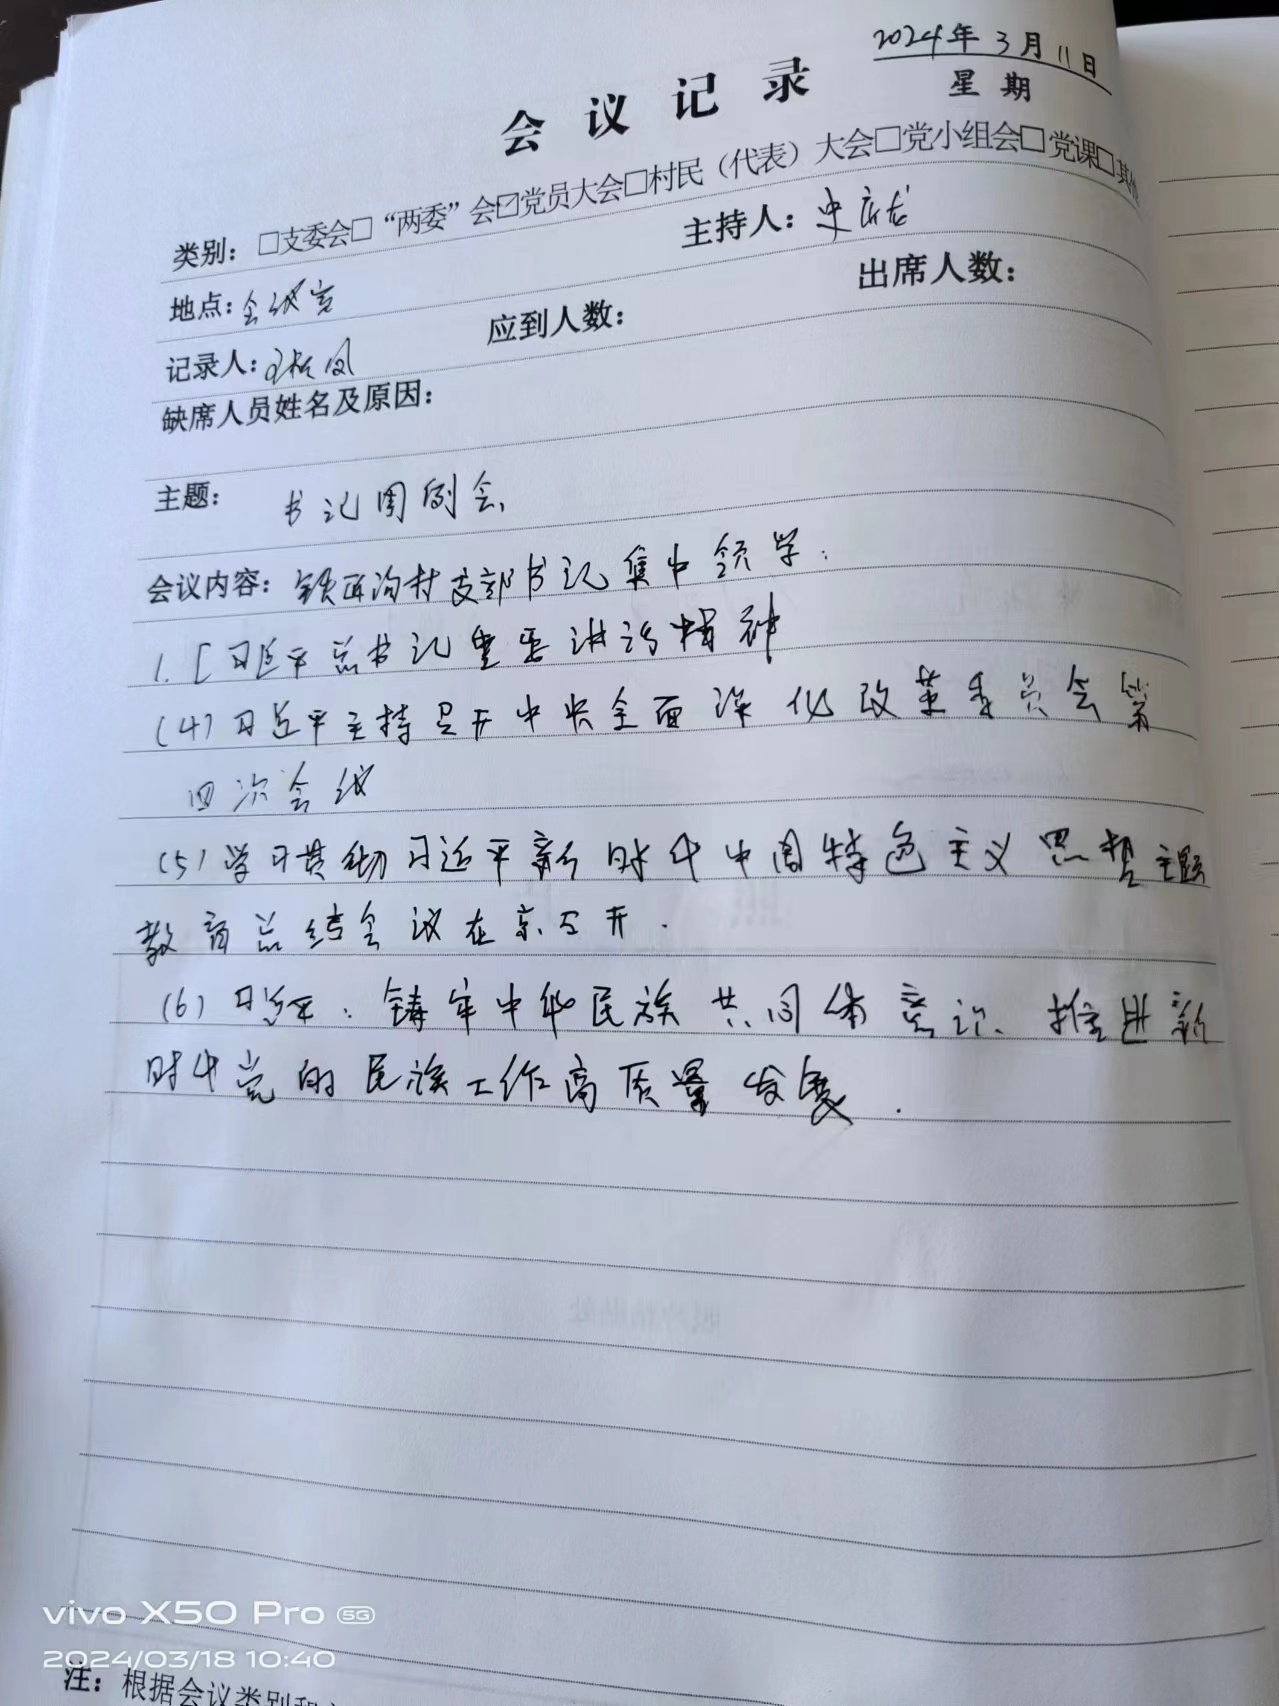 2024年3月11日
会议记录
星期
类别：□支委会□“两委”会☑党员大会□村民（代表）大会□党小组会□党课□其他
地点：会议室
主持人：史
记录人：
应到人数：
出席人数：
缺席人员姓名及原因：
主题：书记周例会
会议内容：铁西沟村支部书记集中领学：
1.[习近平总书记重要讲话精神
(4)习近平主持召开中央全面深化改革委员会第
四次会议
(5)学习贯彻习近平新时代中国特色主义思想主题
教育总结会议在京召开.
(6)习近平：铸牢中华民族共同体意识、推进新
时代党的民族工作高质量发展.
vivo X50 Pro 5G
2024/03/18 10:40
注：根据会议类别和